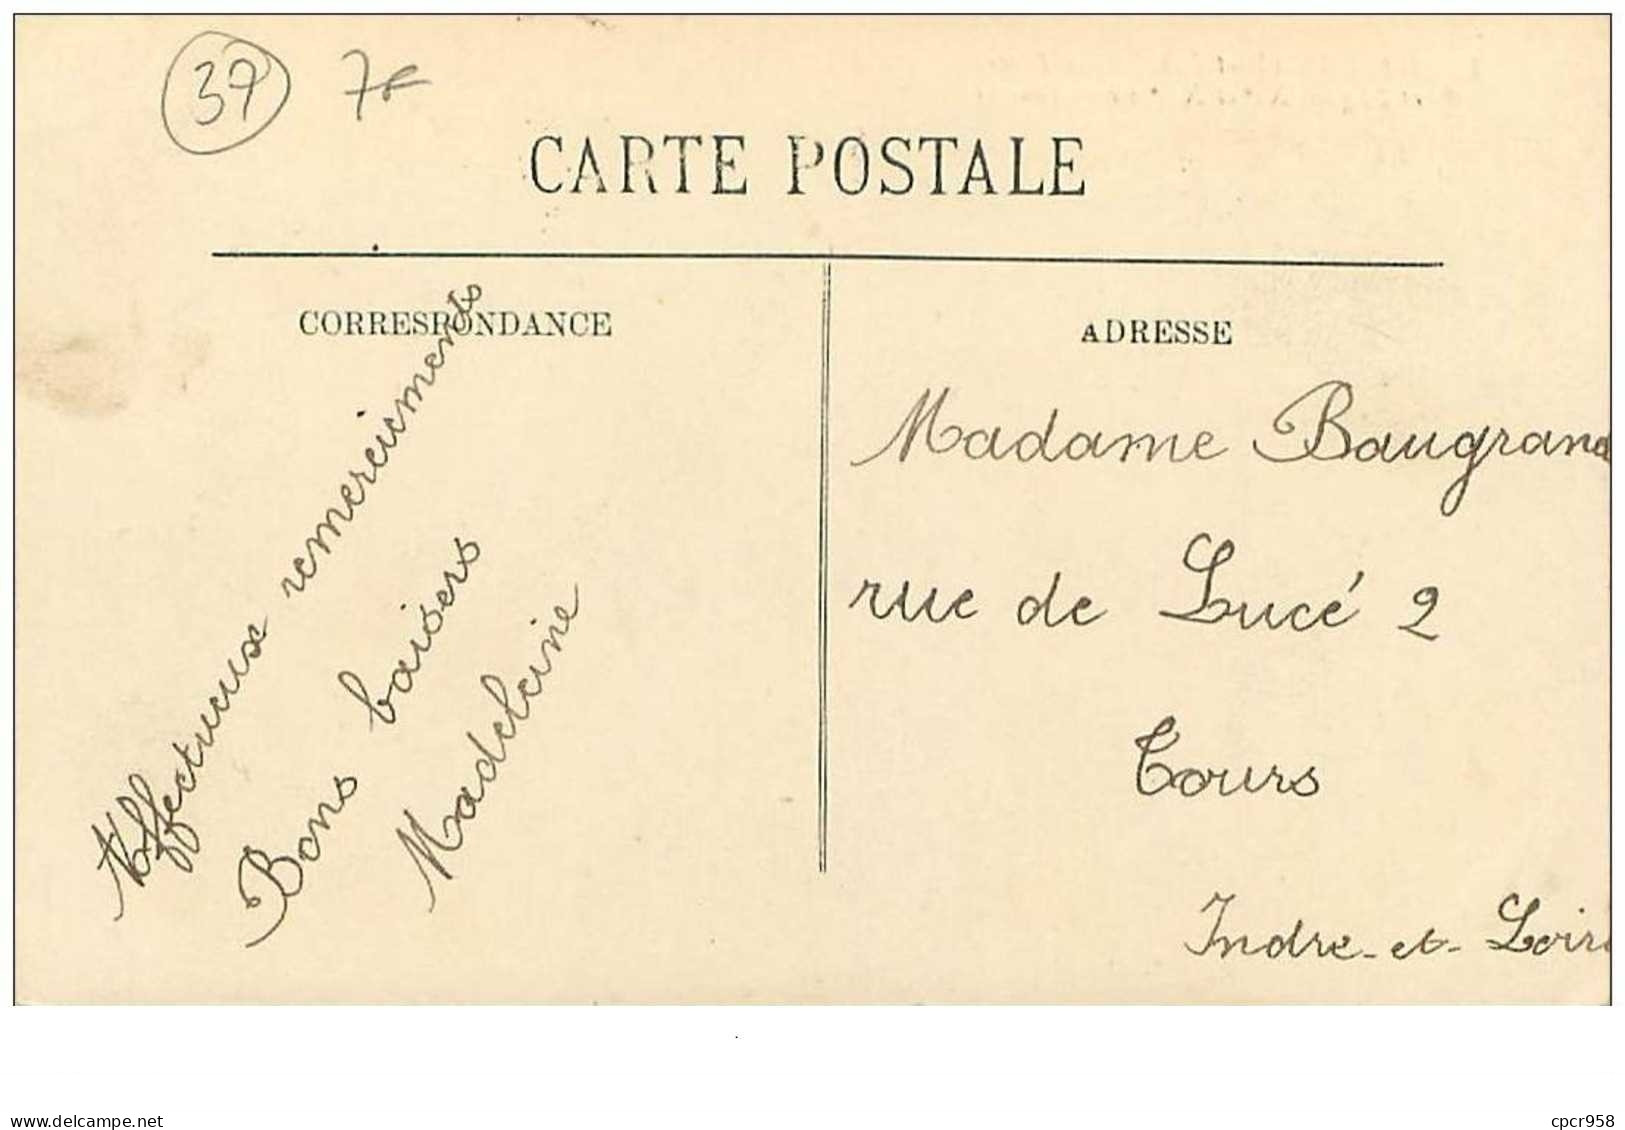 37 7€
CARTE POSTALE
CORRESPONDANCE
Affectueux remerciements
Bons baisers
Madeleine
ADRESSE
Madame Baugrand
rue de Lucé 2
Tours
Indre-et-Loire
www.delcampe.net
cpcr958